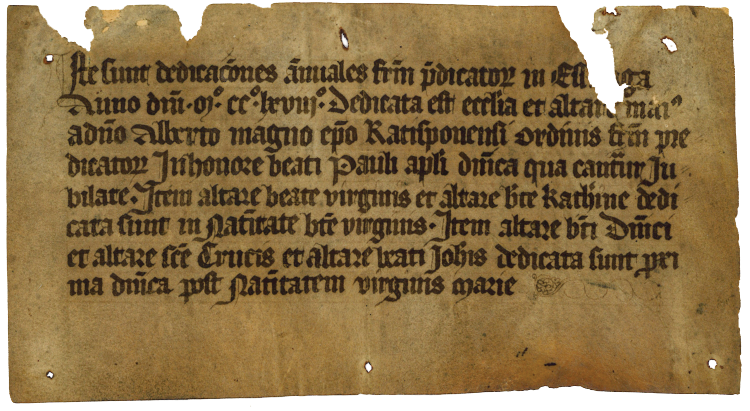 Iste sunt dedicacōnes ānuales frm̄ p̄dicatoꝝ in Ess
Anno dnī · mº · ccº · lxviijº · Dedicata est ecclīa et altare maiꝰ
a dn̄o Alberto magno ep̄o Ratisponensi ordinis frm̄ pre
dicatoꝝ In honore beati Pauli apl̄i dn̄ica qua cantat̄ Ju
bilate · Item altare beate virginis et altare bt̄e Kath̄ine dedi
cata sunt in Nat̄itate bt̄e virginis · Item altare bt̄i Dn̄ici
et altare sc̄e Crucis et altare beati Joh̄is dedicata sunt pxi
ma dn̄ica post Nat̄itatem virginis marie